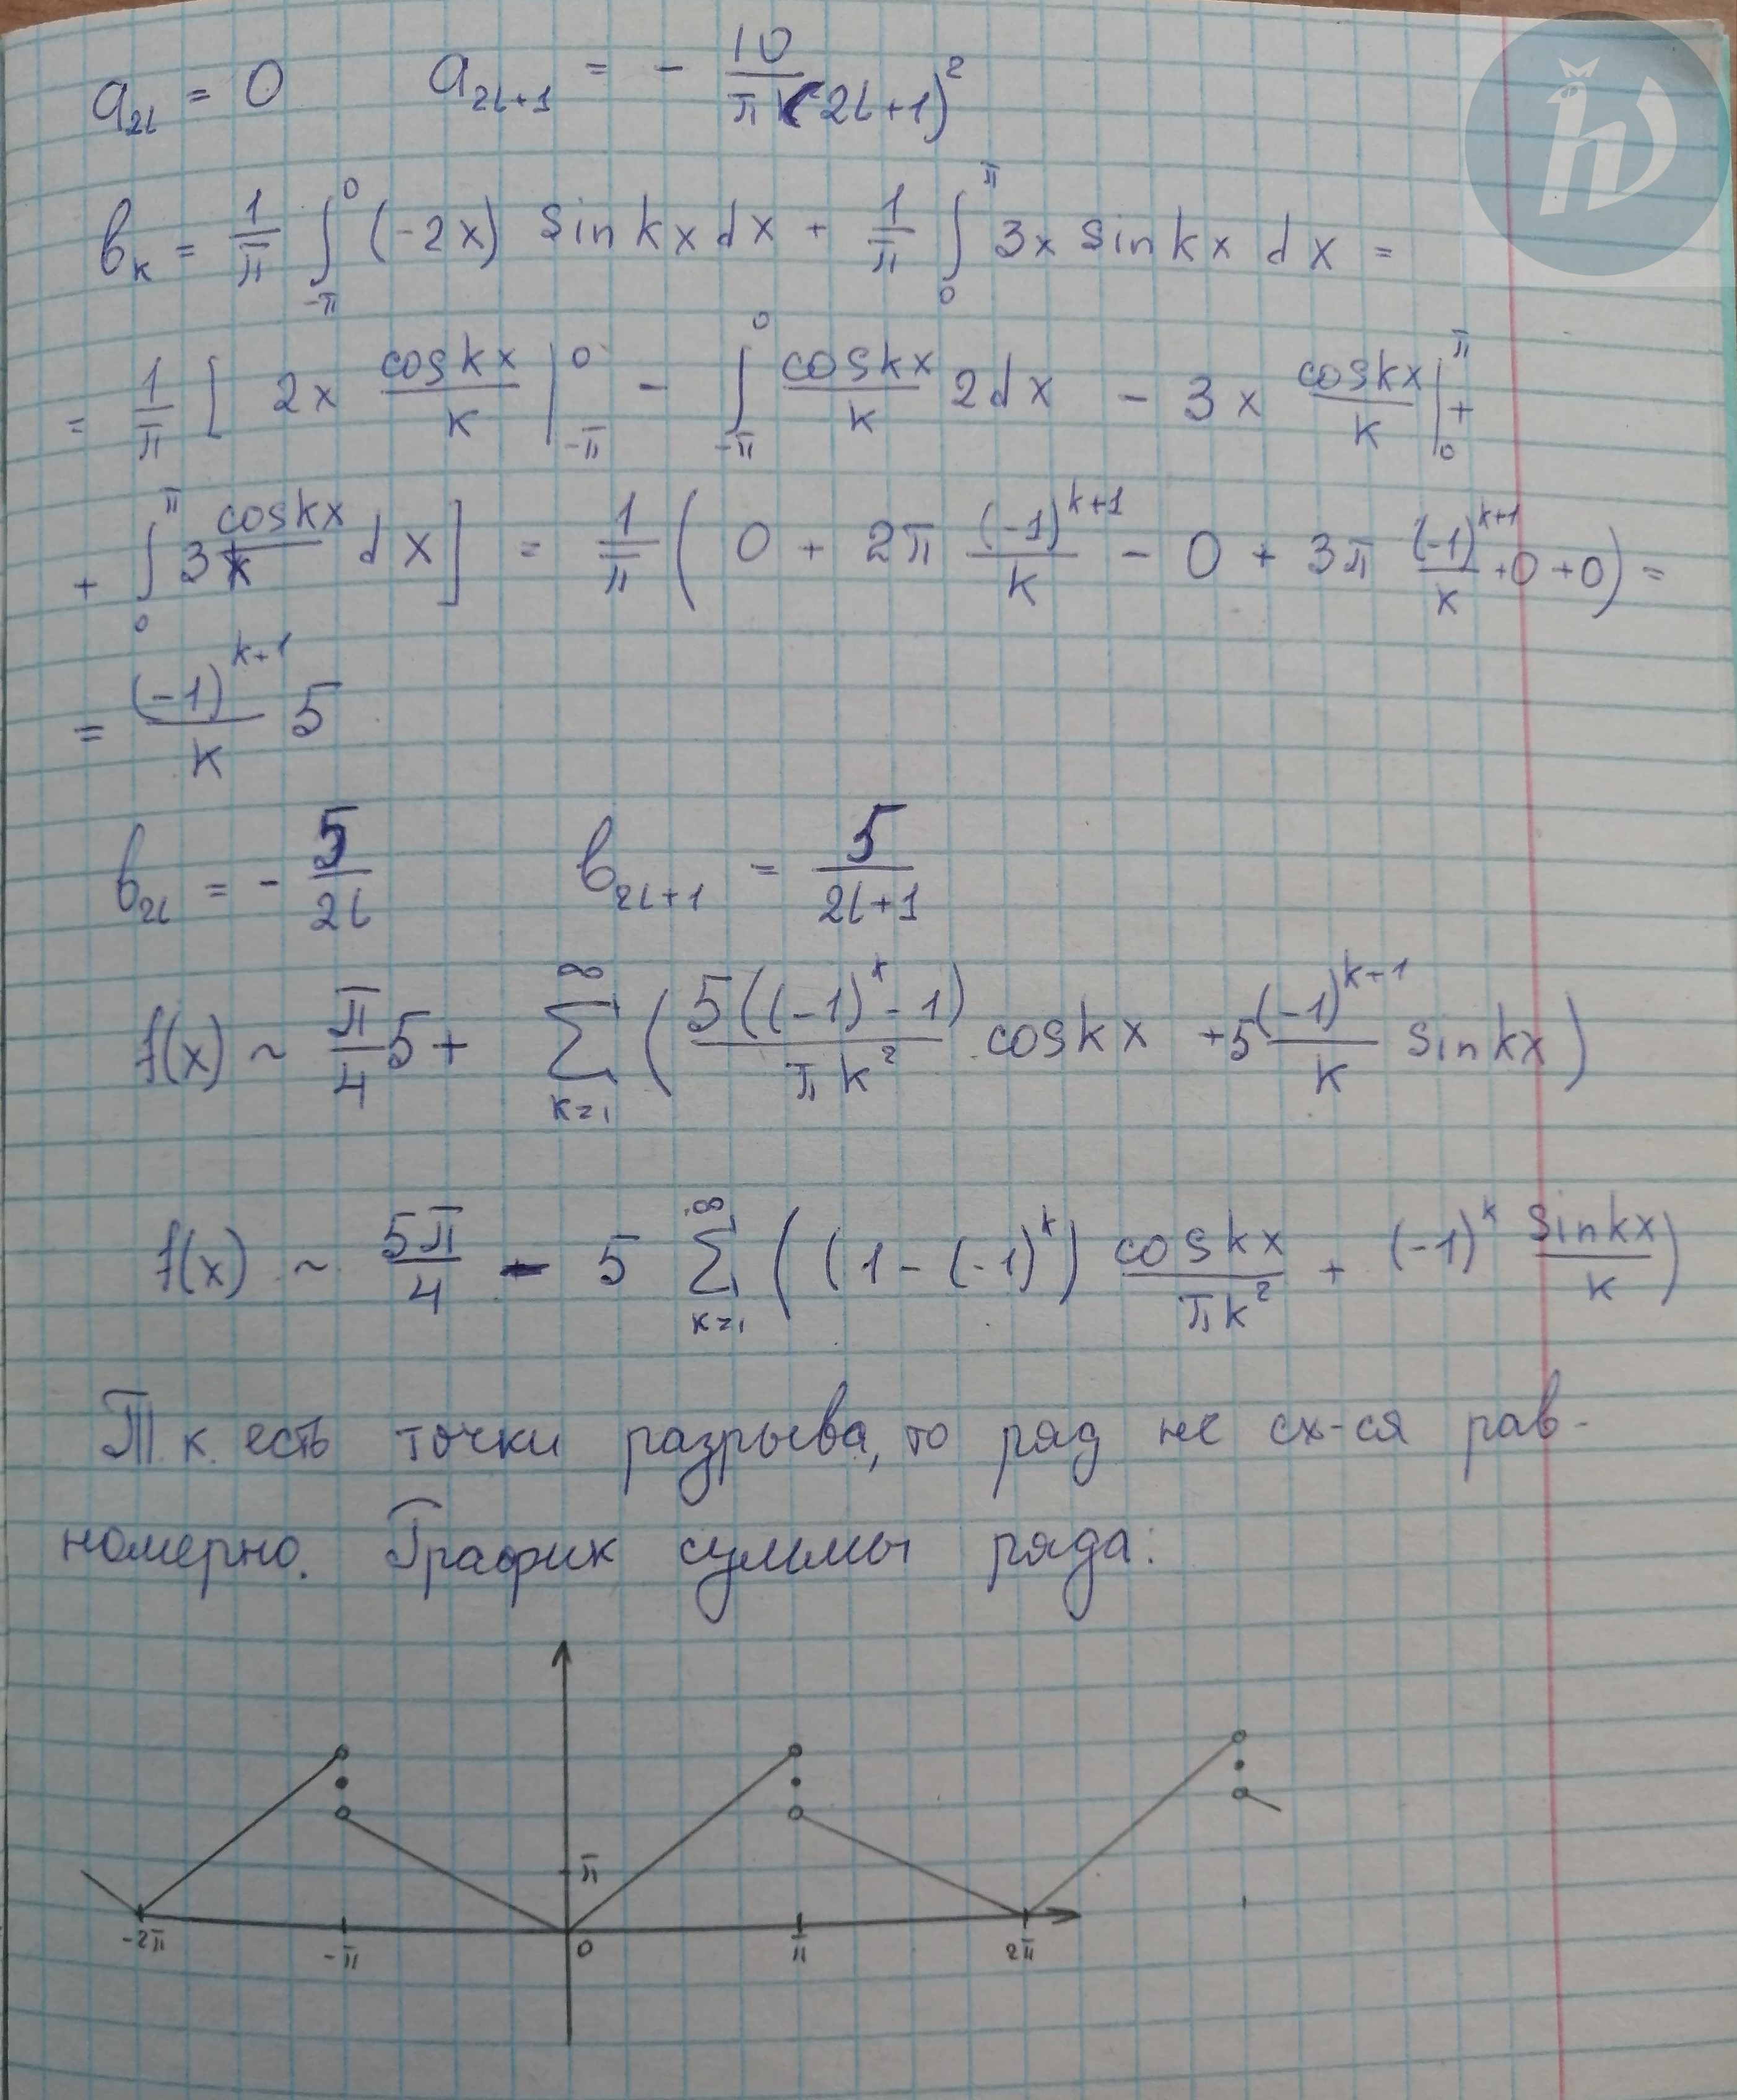 a_{2l} = 0 a_{2l+1} = - 10/(π(2l+1)^2)
b_k = 1/π ∫_{-π}^{0} (-2x) sin kx dx + 1/π ∫_{0}^{π} 3x sin kx dx =
= 1/π [ 2x cos kx/k |_{-π}^{0} - ∫_{-π}^{0} cos kx/k 2dx - 3x cos kx/k |_{0}^{π} +
+ ∫_{0}^{π} 3 cos kx/k dx ] = 1/π ( 0 + 2π (-1)^{k+1}/k - 0 + 3π (-1)^{k+1}/k + 0 + 0 ) =
= (-1)^{k+1}/k 5
b_{2l} = - 5/2l b_{2l+1} = 5/(2l+1)
f(x) ~ π/4 5 + ∑_{k=1}^{∞} ( 5((-1)^k - 1)/(πk^2) cos kx + 5 (-1)^{k+1}/k sin kx )
f(x) ~ 5π/4 - 5 ∑_{k=1}^{∞} ( (1 - (-1)^k) cos kx/(πk^2) + (-1)^k sin kx/k )
Т.к. есть точки разрыва, то ряд не сх-ся рав-
номерно. График суммы ряда:
π
-2π -π 0 π 2π